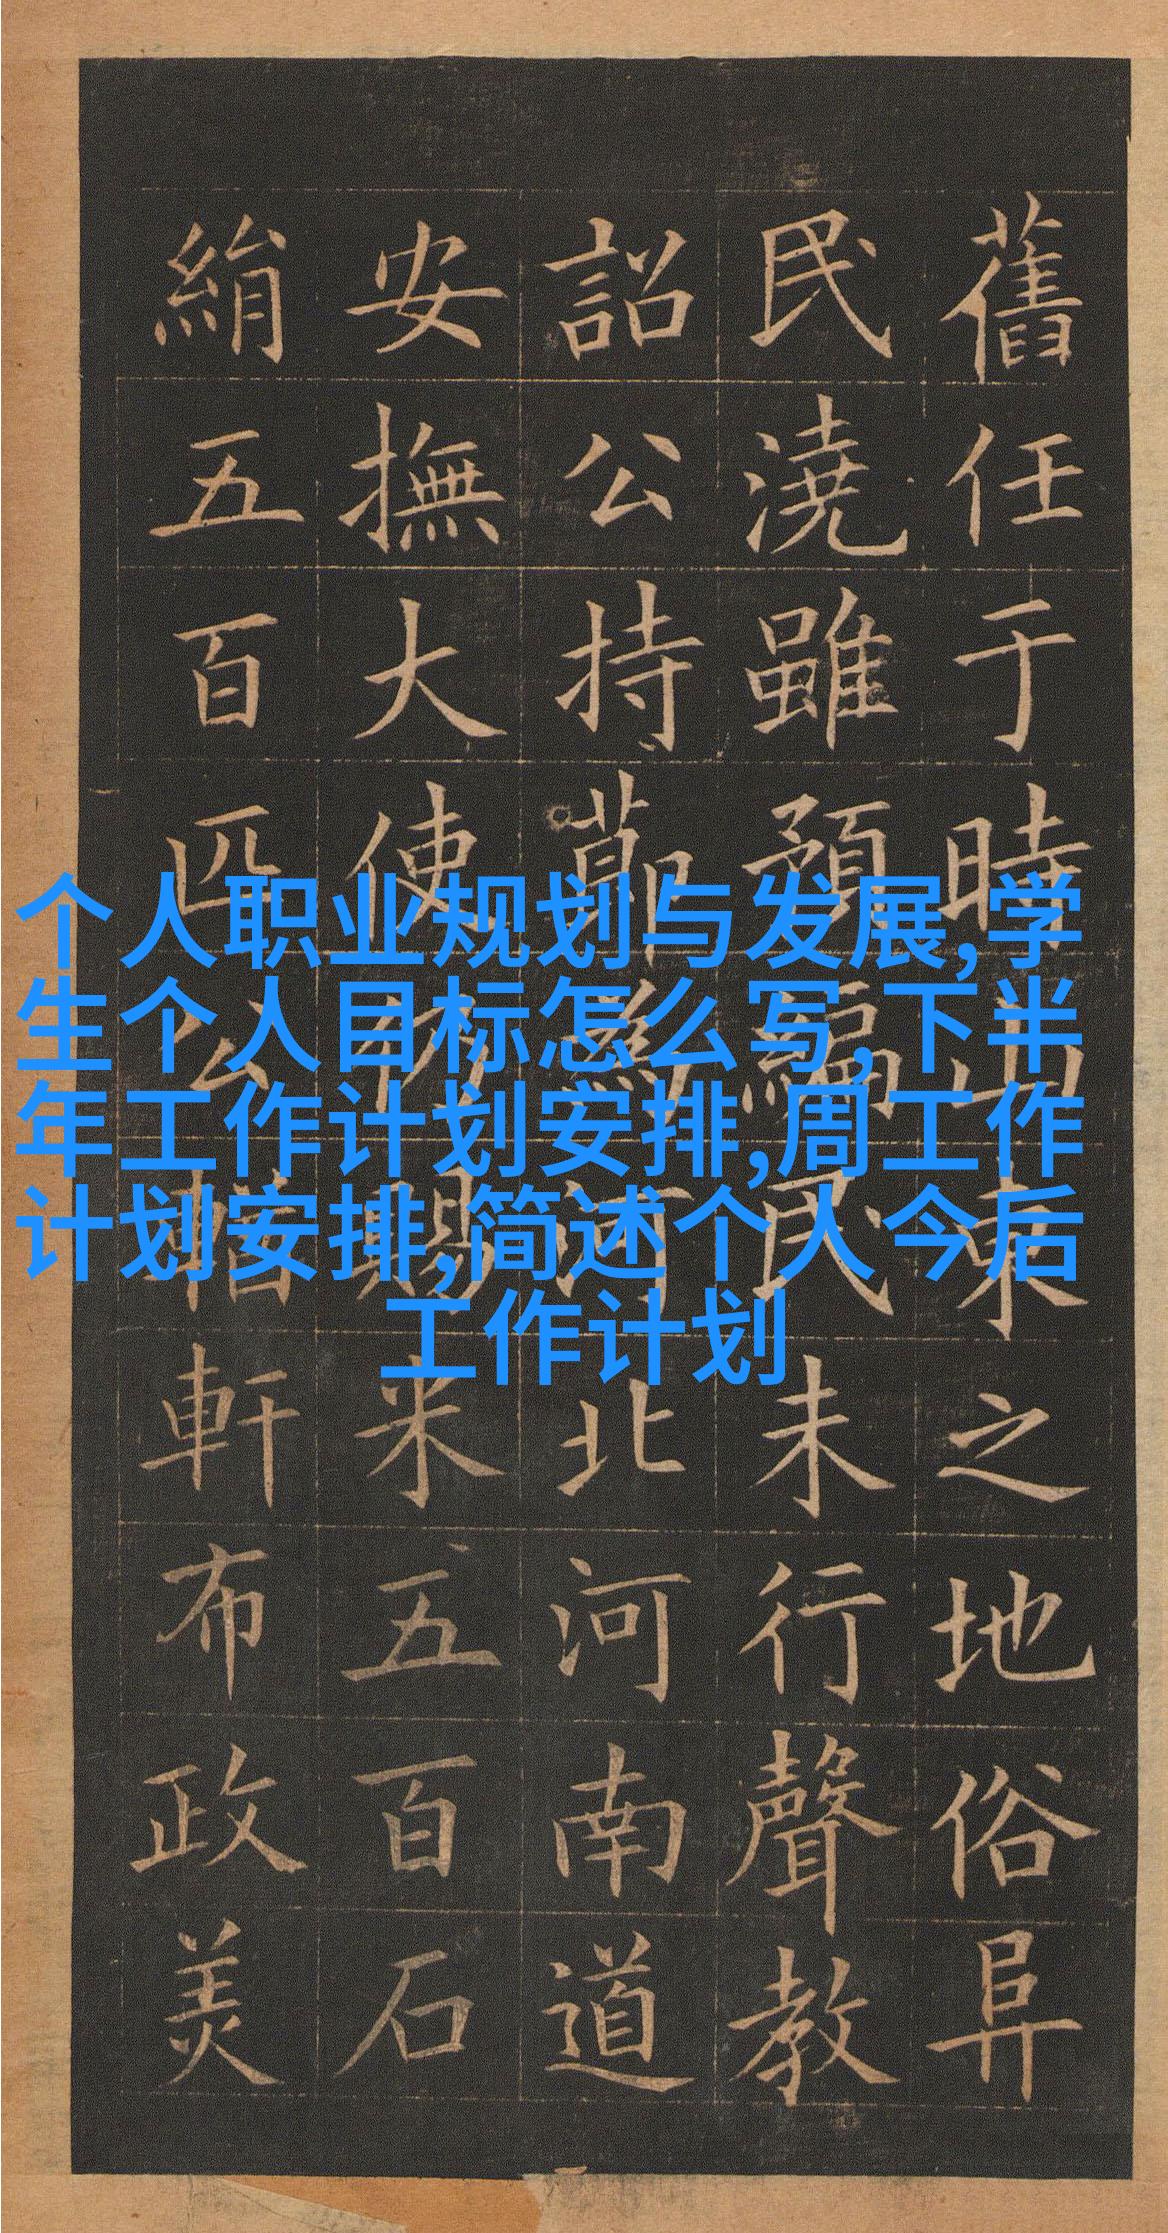 个人职业规划与发展,学
生个人目标怎么写,下半
年工作计划安排,周工作
计划安排,简述个人今后
工作计划
舊任于時山東之地俗
民澆雖預編民未行聲教
詔公持節河北河南道
安撫大使仍賜米五百石
絹五百匹公軒布政美